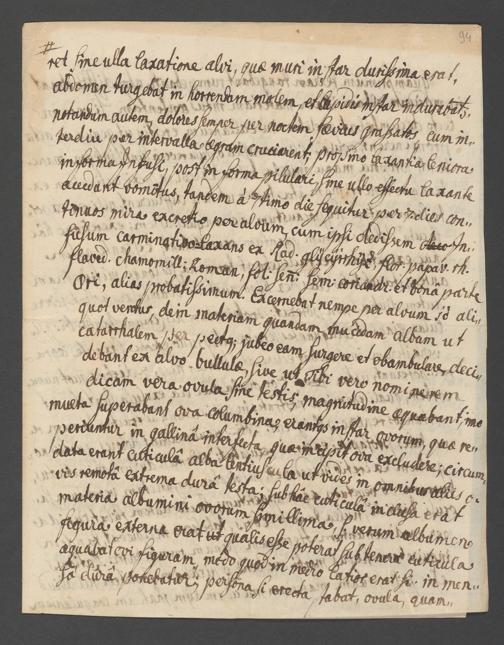 94
#
ret sine ulla laxatione alvi, quæ muri instar durissima erat,
abdomen turgebat in horrendam molem, et lapidis instar indurabat;
notandum autem, dolores semper per noctem sævius quibatos cum in-
terdiu per intervalla ægram cruciarent, propino laxantia leniora
in forma infusi, post in forma pilulari, sine ullo effectu laxante
accedunt vomitus, tandem á 7timo die sequitur per 7 dies con-
tinuos mira excretio per alvum, cum ipsi dedissem In-
fusum carminativo-laxans ex Rad. glycyrrhiz, flor. papav. rh.
flaved. chamomill: Roman, fol: señ: sem: coriandr: et bona parte
Ori, alias probatissimum. Excernebat nempe per alvum 1ô ali-
quot ventus, dein materiam quandam mucosam albam ut
catarrhalem per pectq; jubeo eam surgere et obambulare, deci-
debant ex alvo bullulæ, sive ut Tibi vero nomine rem
dicam vera ovula sine testis, magnitudine æquabant, imo
multa superabant ova columbina, erantq; instar ovorum, quæ re-
periuntur in gallinâ interfecta, quæ incipit ova excludere; circum,,
data erant cuticulâ alba lentius ut vides in omnibus aliis o-
vis remotâ extrema durâ testa; sub hac cuticulâ inclusa erat
materia albumini ovorum simillima, si verum albumen
figura externa erat ut qualis esse poterat sub tenera cuticula
æquabat ovi figuram, modo quod in mero latior erat si in men-
sâ durâ ponebatur, persona si erecta stabat, ovula, quam-